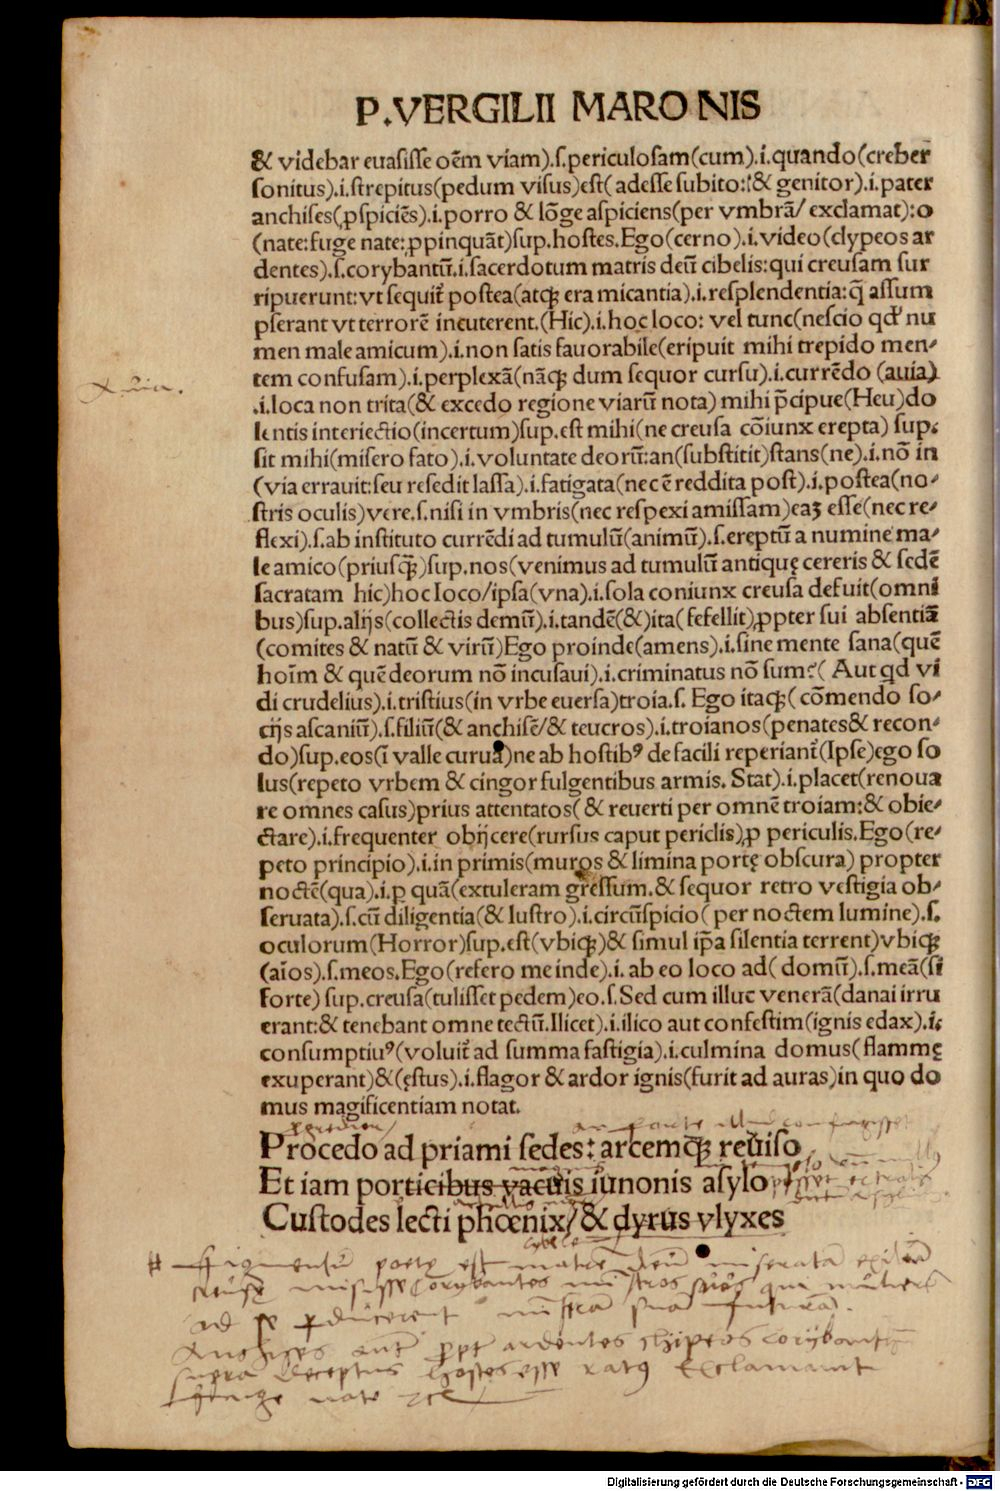 P.VERGILII MARONIS
& videbar euasisse oēm viam).s.periculosam(cum).i.quando(creber
sonitus).i.strepitus(pedum visus)est( adesse subito:!& genitor).i.pater
anchises(ꝓspiciēs).i.porro & lōge aspiciens(per vmbrā/ exclamat):o
(nate:fuge nate:ꝓpinquāt)sup.hostes.Ego(cerno).i.video(clypeos ar
dentes).s.corybantū.i.sacerdotum matris deū cibelis:qui creusam sur
ripuerunt:vt sequit᷑ postea(atqꝫ era micantia).i.resplendentia:q̄ assum
pserant vt terrorē incuterent.(Hic).i.hoc loco: vel tunc(nescio qd' nu
men male amicum).i.non satis fauorabile(eripuit mihi trepido men⸗
tem confusam).i.perplexā(nāqꝫ dum sequor cursu).i.currēdo (auia)
.i.loca non trita(& excedo regione viarū nota) mihi p̄cipue(Heu)do
lentis interiectio(incertum)sup.est mihi(ne creusa cōiunx erepta) sup.
sit mihi(misero fato).i.voluntate deorū:an(substitit)stans(ne).i.nō in
(via errauit:seu resedit lassa).i.fatigata(nec ē reddita post).i.postea(no⸗
stris oculis)vere.s.nisi in vmbris(nec respexi amissam)eaꝫ esse(nec re⸗
flexi).s.ab instituto currēdi ad tumulū(animū).s.ereptū a numine ma⸗
le amico(priusqꝫ̄)sup.nos(venimus ad tumulū antiquę cereris & sedē
sacratam hic)hoc loco/ipsa(vna).i.sola coniunx creusa defuit(omni
bus)sup.alijs(collectis demū).i.tandē(&)ita(fefellit)ꝓpter sui absentiā
(comites & natū & virū)Ego proinde(amens).i.sine mente sana(quē
hoīm & quē deorum nō incusaui).i.criminatus nō sum?( Aut qd vi
di crudelius).i.tristius(in vrbe euersa)troia.s. Ego itaqꝫ( cōmendo so⸗
cijs ascaniū).s.filiū(& anchisē/& teucros).i.troianos(penates& recon⸗
do)sup.eos(ī valle curua)ne ab hostibꝰ de facili reperiant᷑(Ipse)ego so
lus(repeto vrbem & cingor fulgentibus armis. Stat).i.placet(renoua
re omnes casus)prius attentatos( & reuerti per omnē troiam:& obie⸗
ctare).i.frequenter obijcere(rursus caput periclis)ꝓ periculis.Ego(re⸗
peto principio).i.in primis(muros & limina portę obscura) propter
noctē(qua).i.ꝑ quā(extuleram gressum.& sequor retro vestigia ob⸗
seruata).s.cū diligentia(& lustro).i.circūspicio( per noctem lumine).s.
oculorum(Horror)sup.est(vbiqꝫ)& simul ip̄a silentia terrent)vbiqꝫ
(aīos).s.meos.Ego(refero me inde).i. ab eo loco ad( domū).s.meā(si
forte) sup.creusa(tulisset pedem)eo.s.Sed cum illuc venerā(danai irru
erant:& tenebant omne tectū.Ilicet).i.ilico aut confestim(ignis edax).i.
consumptiuꝰ(voluit᷑ ad summa fastigia).i.culmina domus(flammę
exuperant)&(ęstus).i.flagor & ardor ignis(furit ad auras)in quo do
mus magificentiam notat.
Procedo ad priami sedes: arcemqꝫ reuiso
Et iam porticibus vacuis iunonis asylo
Custodes lecti phœnix/ & dyrus vlyxes
Figmentū poetę est matrē deū miseratā
misisse Corybantes suos qui
ad se
Anchises aut ꝓpt ardentes clypeos corybantū
supra deceptus hostes esse ratꝰ Exclamauit
nate
Digitalisierung gefördert durch die Deutsche Forschungsgemeinschaft - DFG